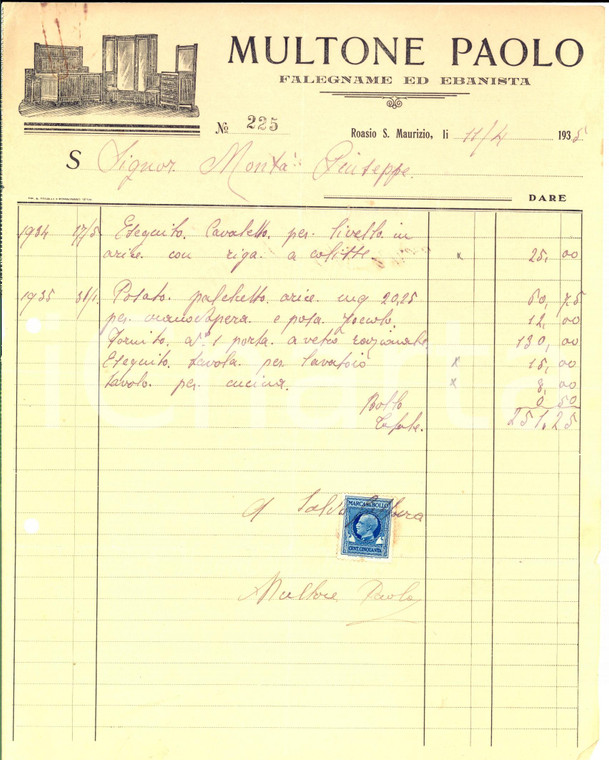 MULTONE PAOLO
FALEGNAME ED EBANISTA
№ 225
Roasio S. Maurizio, li 11/4 1935
S Signor Montà Giuseppe
DARE
1934 17/5 Eseguito Cavaletto per livello in
arice con riga a 25,00
1935 31/1 Posato palchetto arice mq 20,25 60,75
per manodopera e posa zocolo 12,00
Fornito n° 1 porta a vetro 130,00
Eseguito tavola per lavatoio x 15,00
tavolo per cucina x 8,00
Bollo 0 50
Totale 251,25
A Saldo
MARCA DA BOLLO
CENT. CINQUANTA
Multone Paolo